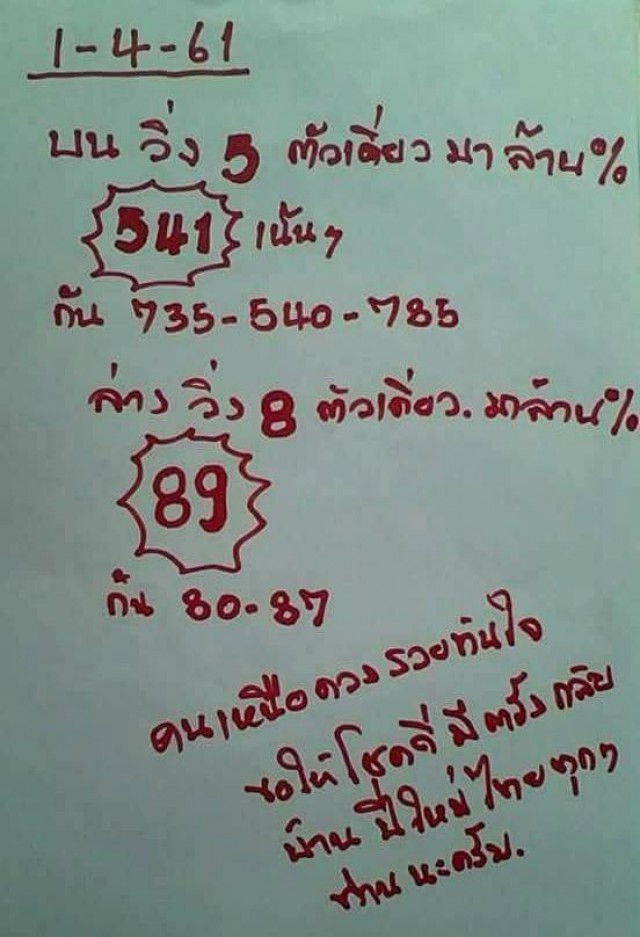 1-4-61
บน วิ่ง 5 ตัวเดียว มา ล้าน%
541 เน้นๆ
กัน 735-540-785
ล่าง วิ่ง 8 ตัวเดียว. มาล้าน%
89
กัน 80-87
คนเหนือดวง รวยทันใจ
ขอให้ โชคดี มี ตรัง กลับ
บ้าน ปีใหม่ ไทย ทุกๆ
ท่าน นะครับ.